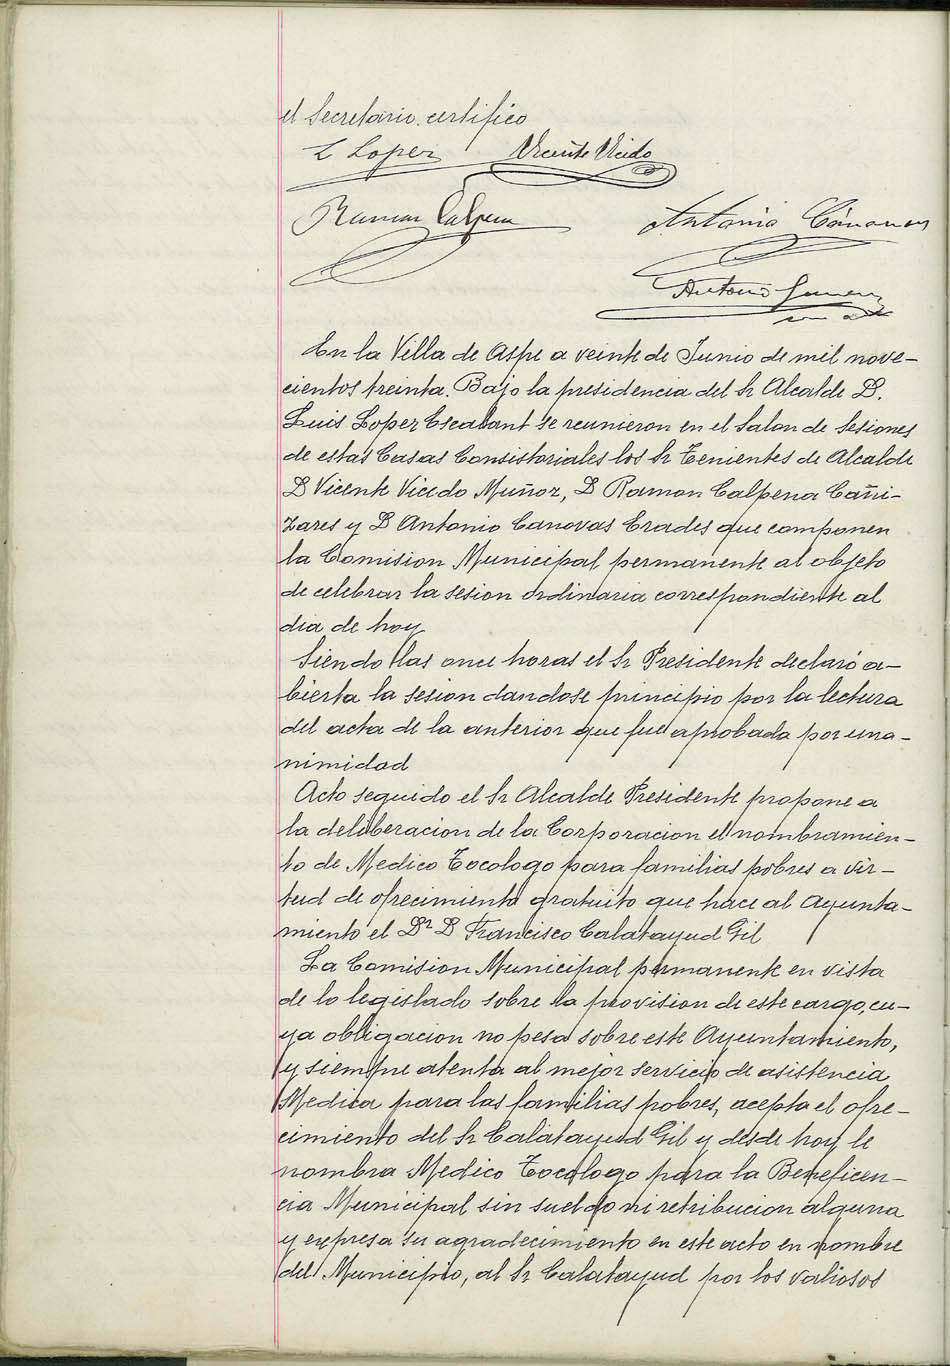 el Secretario. certifico
L Lopez Vicente Vicedo
Ramon Calpena Antonio Cánovas
Antonio
En la Villa de Aspe a veinte de Junio de mil nove-
cientos treinta. Bajo la presidencia del Sr Alcalde D.
Luis Lopez Escalant se reunieron en el Salon de Sesiones
de estas Casas Consistoriales los Sr Tenientes de Alcalde
D Vicente Vicedo Muñoz, D Ramon Calpena Cañi-
zares y D Antonio Canovas Erades que componen
la Comision Municipal permanente al objeto
de celebrar la sesion ordinaria correspondiente al
dia de hoy
Siendo las once horas el Sr Presidente declaró a-
bierta la sesion dandose principio por la lectura
del acta de la anterior que fue aprobada por una-
nimidad
Acto seguido el Sr Alcalde Presidente propone a
la deliberacion de la Corporacion el nombramien-
to de Medico Tocologo para familias pobres a vir-
tud de ofrecimiento gratuito que hace al Ayunta-
miento el Dr D Francisco Calatayud Gil
La Comision Municipal permanente en vista
de lo legislado sobre la provision de este cargo, cu-
ya obligacion no pesa sobre este Ayuntamiento,
y siempre atenta al mejor servicio de asistencia
Medica para las familias pobres, acepta el ofre-
cimiento del Sr Calatayud Gil y desde hoy le
nombra Medico Tocologo para la Beneficen-
cia Municipal sin sueldo ni retribucion alguna
y expresa su agradecimiento en este acto en nombre
del Municipio, al Sr Calatayud por los valiosos